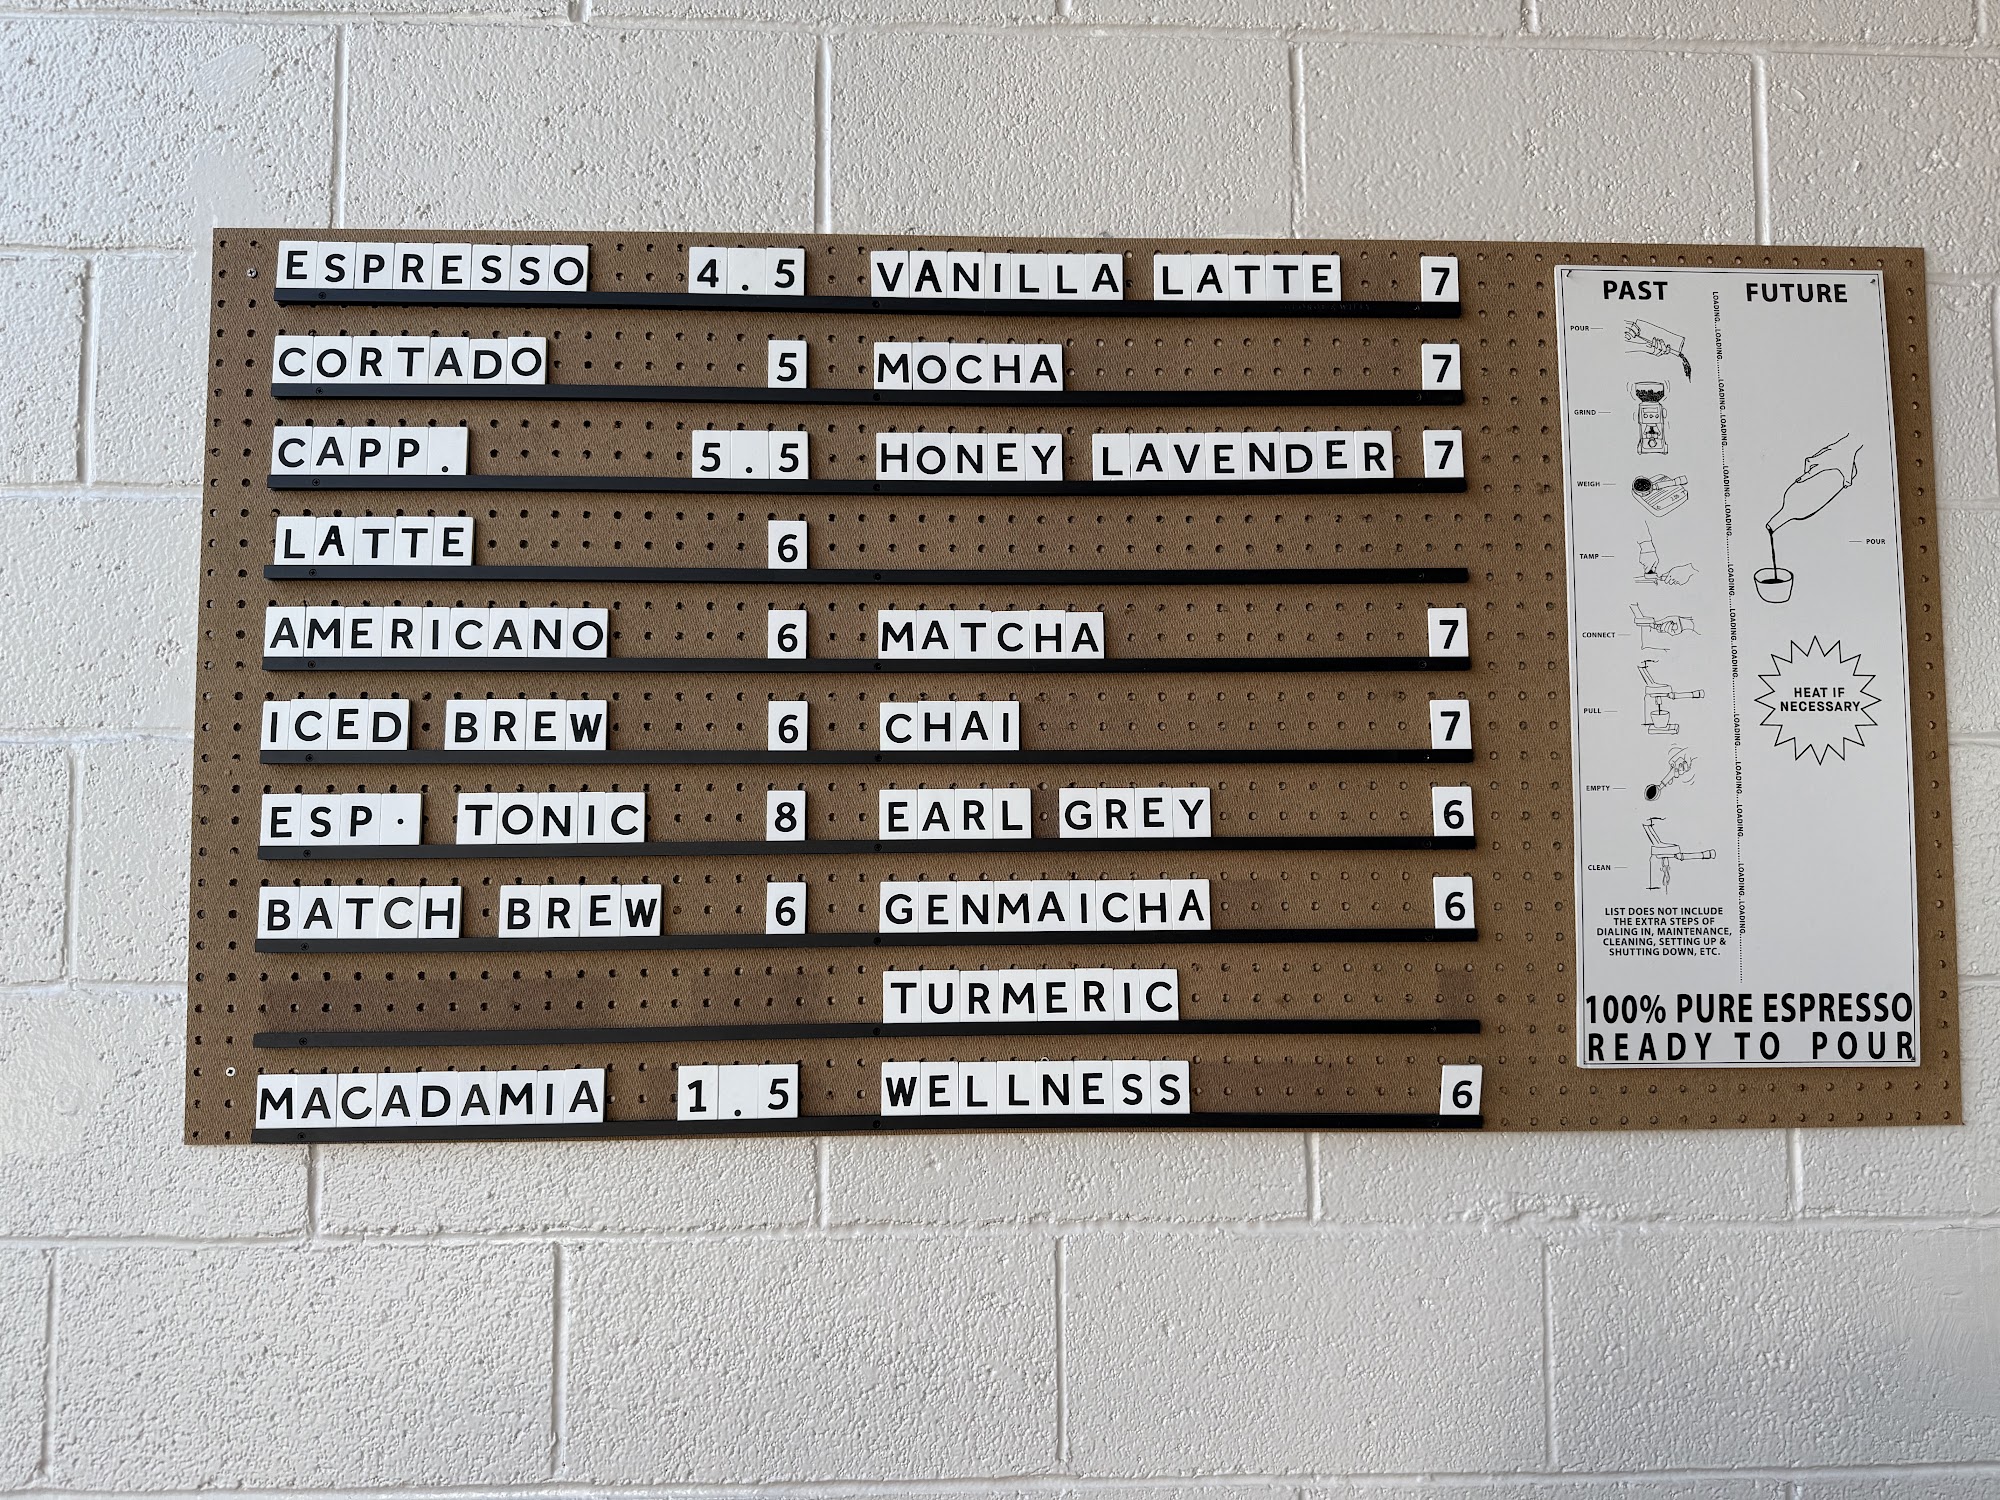 ESPRESSO 4.5
CORTADO 5
CAPP. 5.5
LATTE 6
AMERICANO 6
ICED BREW 6
ESP· TONIC 8
BATCH BREW 6
MACADAMIA 1.5
VANILLA LATTE 7
MOCHA 7
HONEY LAVENDER 7
MATCHA 7
CHAI 7
EARL GREY 6
GENMAICHA 6
TURMERIC
WELLNESS 6
PAST
POUR
GRIND
WEIGH
TAMP
CONNECT
PULL
EMPTY
CLEAN
LIST DOES NOT INCLUDE
THE EXTRA STEPS OF
DIALING IN, MAINTENANCE,
CLEANING, SETTING UP &
SHUTTING DOWN, ETC.
LOADING...LOADING......LOADING...LOADING......LOADING...LOADING......LOADING...LOADING......LOADING...LOADING......LOADING...LOADING......LOADING...LOADING
FUTURE
POUR
HEAT IF
NECESSARY
100% PURE ESPRESSO
READY TO POUR